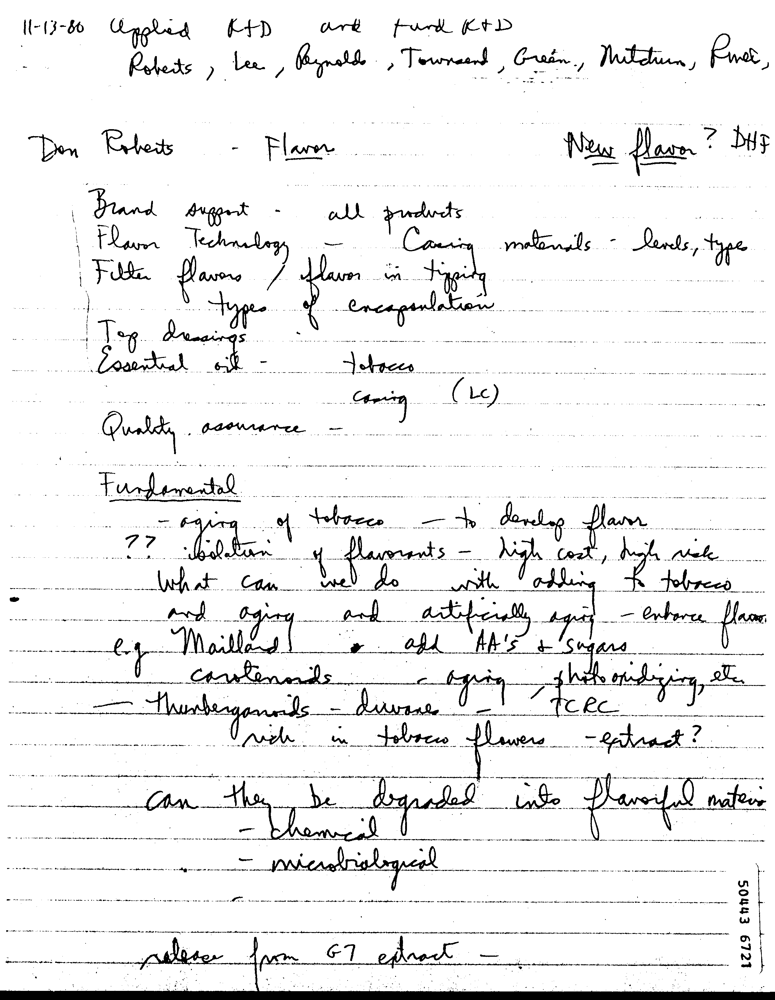 11-13-80 Applied R+D and Fund R+D
Roberts, Lee, Reynolds, Townsend, Green, Mitchum,
Don Roberts - Flavor New flavor? DHF
Brand support - all products
Flavor Technology - Casing materials - levels, types
Filter flavors / flavor in tipping
types of encapsulation
Top dressings
Essential oil - tobacco
casing (LC)
Quality assurance -
Fundamental
- aging of tobacco - to develop flavor
?? isolation of flavorants - high cost, high risk
What can we do with adding to tobacco
and aging and artificially aging - enhance flavor
e.g Maillard • add AA's + sugars
carotenoids - aging, photooxidizing, etc
- thunberganoids - duvanes - TCRC
rich in tobacco flowers - extract?
can they be degraded into flavorful materia
- chemical
- microbiological
-
release from G7 extract -
50443 6721